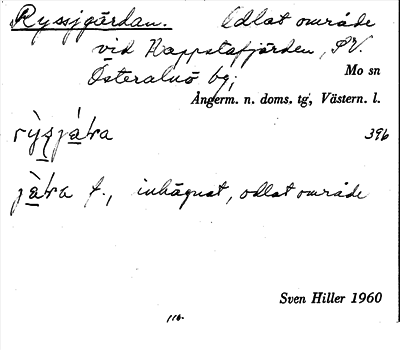 Ryssjgärdan. Odlat område
vid Happstafjärden, SV.
Österalnö by,
Mo sn
Ångerm. n. doms. tg, Västern. l.
396
f., inhägnat, odlat område
Sven Hiller 1960